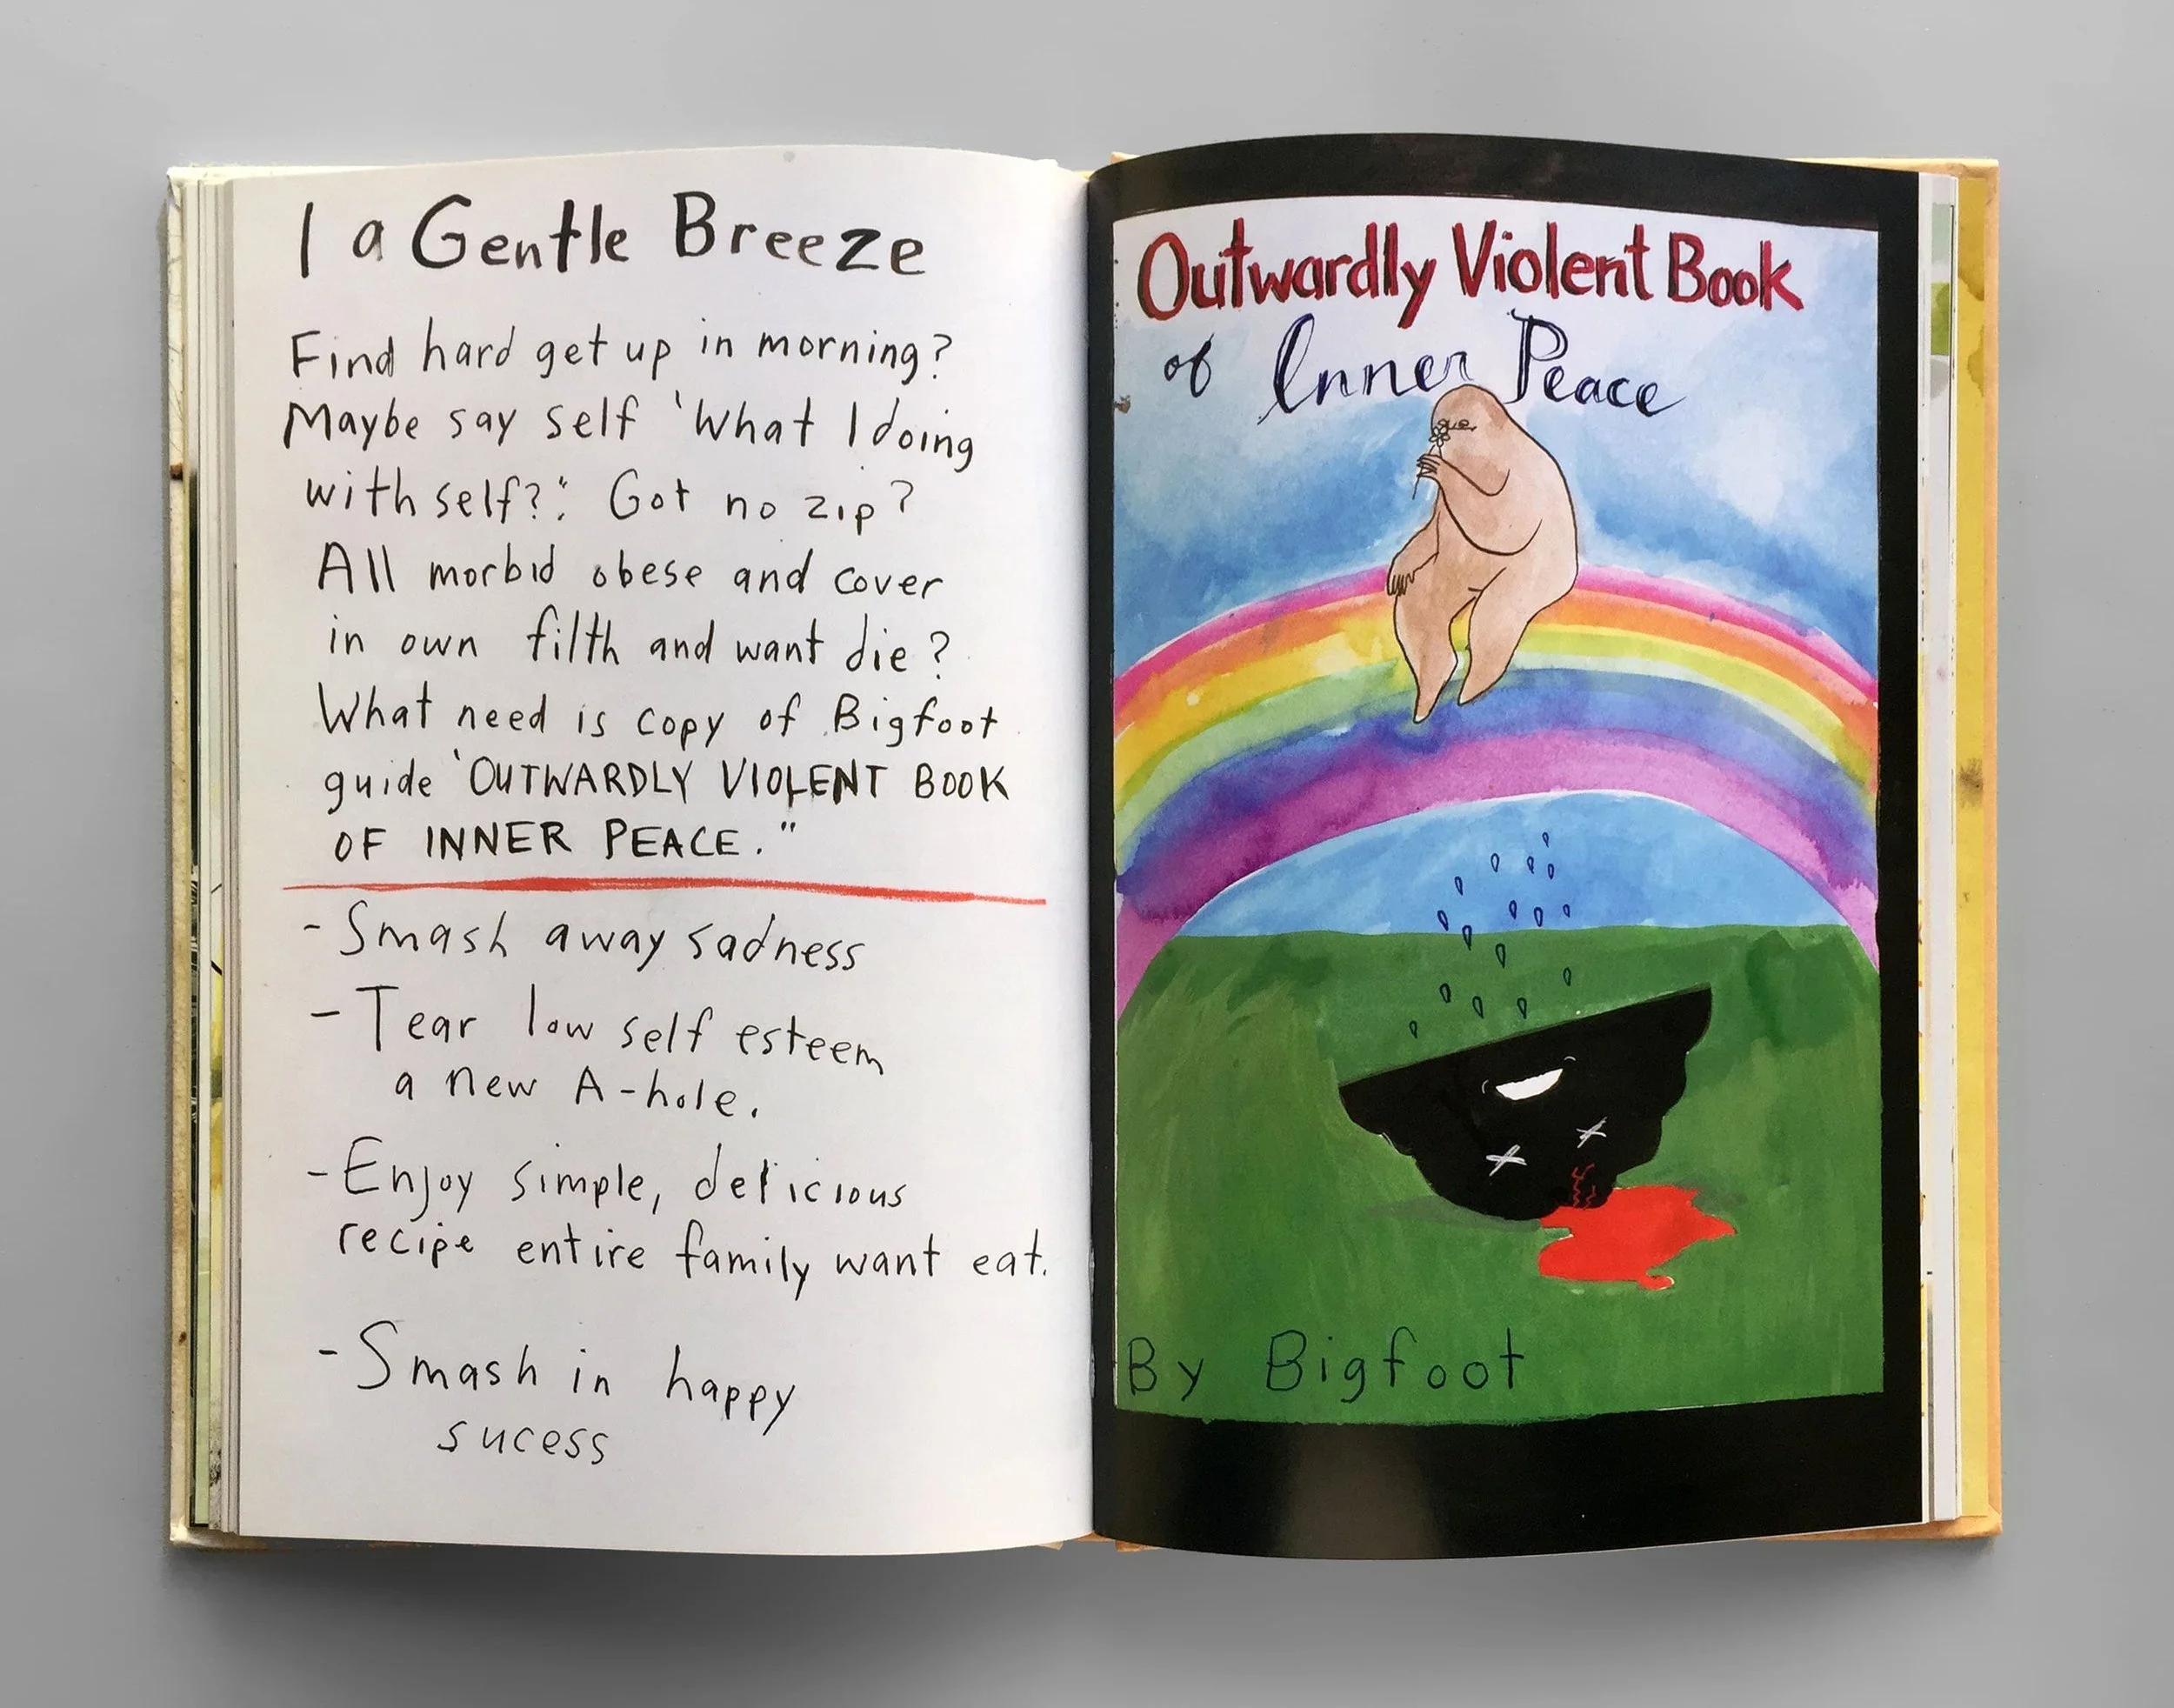 I a Gentle Breeze
Find hard get up in morning?
Maybe say self 'What I doing
with self?'. Got no zip?
All morbid obese and cover
in own filth and want die?
What need is copy of Bigfoot
guide 'OUTWARDLY VIOLENT BOOK
OF INNER PEACE."
- Smash away sadness
- Tear low self esteem
a new A-hole.
- Enjoy simple, delicious
recipe entire family want eat.
- Smash in happy
sucess
Outwardly Violent Book
of Inner Peace
By Bigfoot